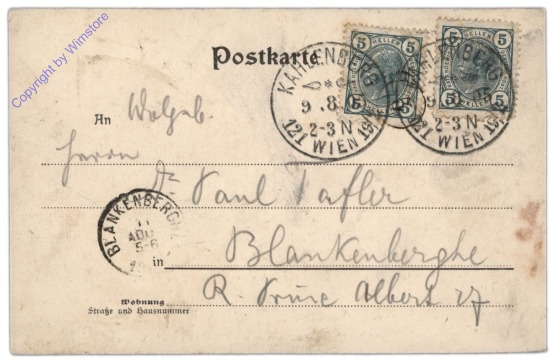 Copyright by Wimstore
Postkarte
KAHLENBERG
9. 8.
2-3 N
121 WIEN 19
5 HELLER 5
5 5
5 HELLER 5
5 5
2-3 N
121 WIEN 19
An Wolgeb.
Herrn
Dr Paul
BLANKENBERGHE
11
AOU
5-6
in Blankenberghe
Wohnung
Straße und Hausnummer
R. Prince Albert 27